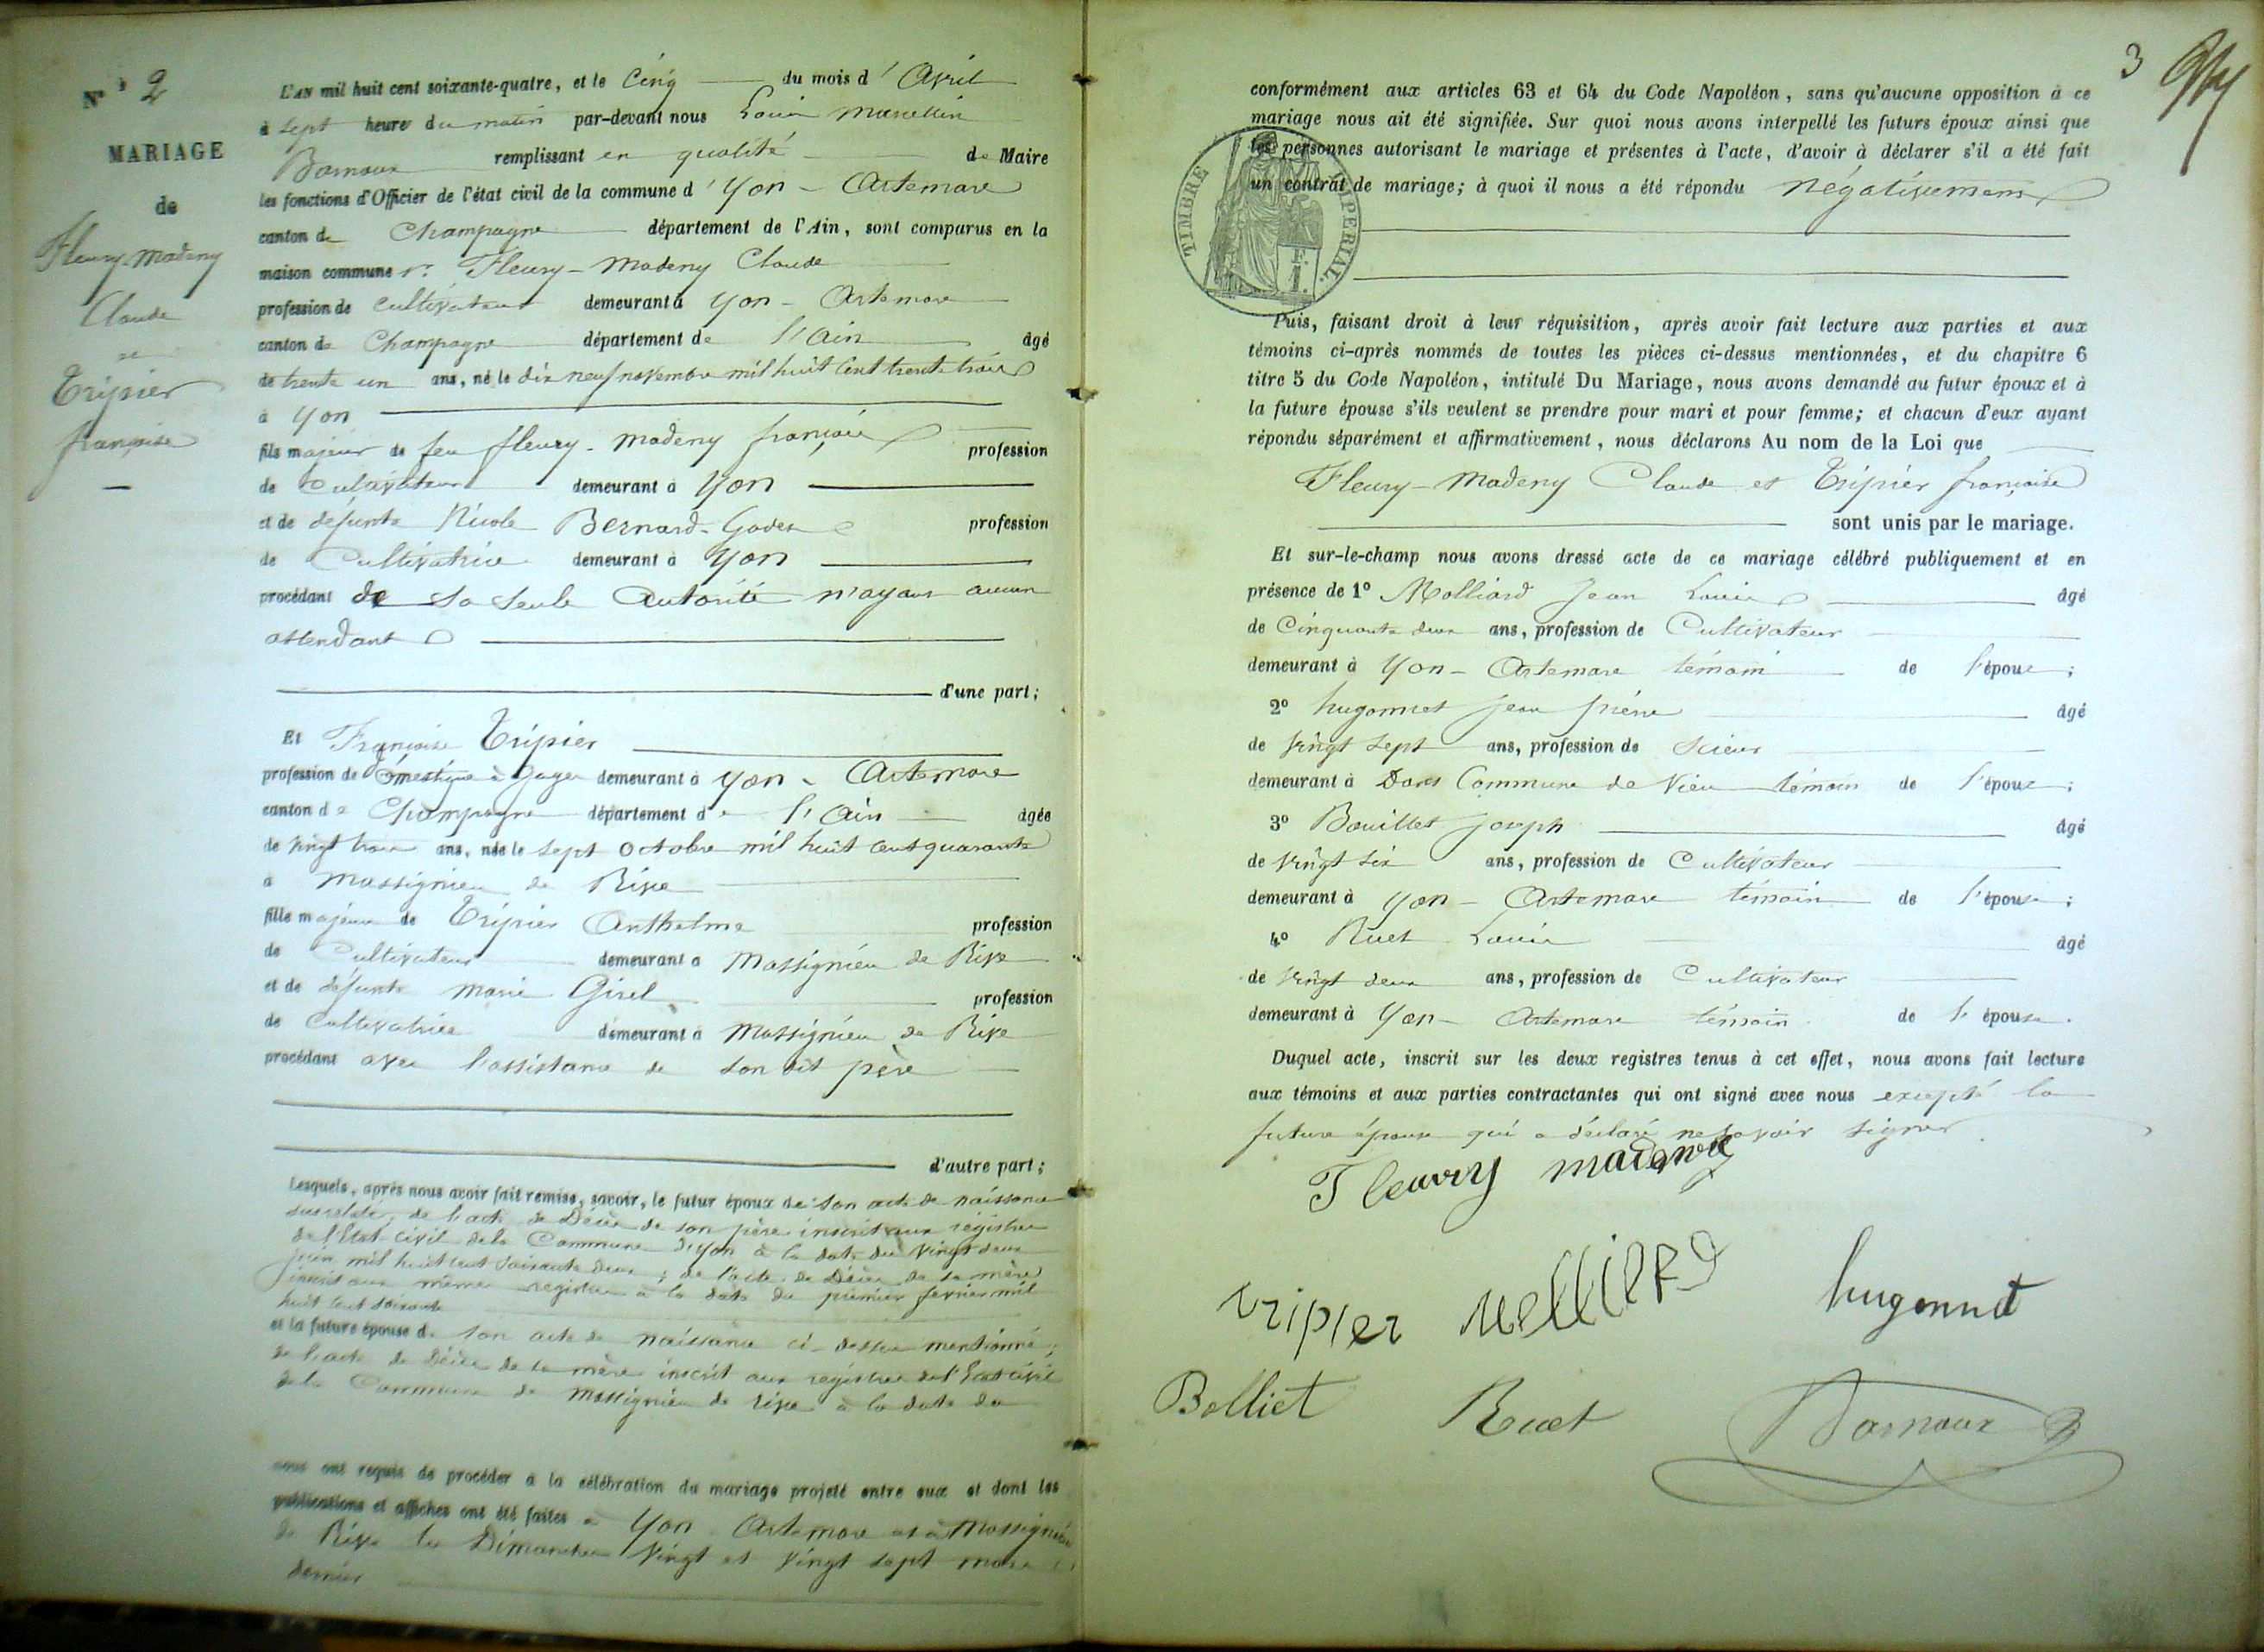 N° 2
MARIAGE
de
Fleury-Madeny
Claude
et
Tripier
françoise
L'AN mil huit cent soixante-quatre, et le Cinq du mois d'Avril
à sept heures du matin par-devant nous Louis Marcellin
Darnoux remplissant en qualité de Maire
les fonctions d'Officier de l'état civil de la commune d'Yon-Artemare
canton de Champagne département de l'Ain, sont comparus en la
maison commune Sr Fleury-Madeny Claude
profession de cultivateur demeurant à Yon-Artemare
canton de Champagne département de l'Ain âgé
de trente un ans, né le dix neuf novembre mil huit cent trente trois
à Yon
fils majeur de feu fleury-madeny françois profession
de Cultivateur demeurant à Yon
et de défunte Nicole Bernard-Godet profession
de Cultivatrice demeurant à Yon
procédant de sa seule Autorité n'ayant aucun
ascendant
d'une part;
Et Françoise Tripier
profession de Domestique à Gages demeurant à Yon-Artemare
canton de Champagne département de l'Ain âgée
de vingt trois ans, née le sept Octobre mil huit cent quarante
à Massignieu de Rive
fille majeure de Tripier Anthelme profession
de Cultivateur demeurant à Massignieu de Rive
et de défunte Marie Girel profession
de Cultivatrice demeurant à Massignieu de Rive
procédant avec l'assistance de son dit père
d'autre part;
Lesquels, après nous avoir fait remise, savoir, le futur époux de son acte de naissance
susrelaté, de l'acte de Décès de son père inscrit aux régistres
de l'Etat civil de la Commune d'Yon à la date du vingt deux
juin mil huit cent soixante deux; de l'acte de Décès de sa mère
inscrit aux mêmes registres à la date du premier fevrier mil
huit cent soixante
et la future épouse de son acte de naissance ci-dessus mentionné;
de l'acte de Décès de sa mère inscrit aux registres de l'Etat civil
de la Commune de Massignieu de rive à la date du
nous ont requis de procéder à la célébration du mariage projeté entre eux et dont les
publications et affiches ont été faites à Yon-Artemare et à Massignieu
de Rive les Dimanches vingt et vingt sept mars
dernier
3
conformément aux articles 63 et 64 du Code Napoléon, sans qu'aucune opposition à ce
mariage nous ait été signifiée. Sur quoi nous avons interpellé les futurs époux ainsi que
les personnes autorisant le mariage et présentes à l'acte, d'avoir à déclarer s'il a été fait
un contrat de mariage; à quoi il nous a été répondu négativement
TIMBRE IMPERIAL.
Puis, faisant droit à leur réquisition, après avoir fait lecture aux parties et aux
témoins ci-après nommés de toutes les pièces ci-dessus mentionnées, et du chapitre 6
titre 5 du Code Napoléon, intitulé Du Mariage, nous avons demandé au futur époux et à
la future épouse s'ils veulent se prendre pour mari et pour femme; et chacun d'eux ayant
répondu séparément et affirmativement, nous déclarons Au nom de la Loi que
Fleury-Madeny Claude et Tripier françoise
sont unis par le mariage.
Et sur-le-champ nous avons dressé acte de ce mariage célébré publiquement et en
présence de 1° Molliard Jean Louis âgé
de Cinquante deux ans, profession de Cultivateur
demeurant à Yon-Artemare témoin de l'époux;
2° hugonnet Jean âgé
de vingt sept ans, profession de scieur
demeurant à Commune de Vieu témoin de l'époux;
3° Bouillet Joseph âgé
de vingt six ans, profession de Cultivateur
demeurant à Yon-Artemare témoin de l'épouse;
4° Ruet Louis âgé
de vingt deux ans, profession de Cultivateur
demeurant à Yon-Artemare témoin de l'épouse.
Duquel acte, inscrit sur les deux registres tenus à cet effet, nous avons fait lecture
aux témoins et aux parties contractantes qui ont signé avec nous excepté la
future épouse qui a déclaré ne savoir signer
Fleurry madeny
tripier Molliard hugonnet
Bolliet Ruet Darnoux